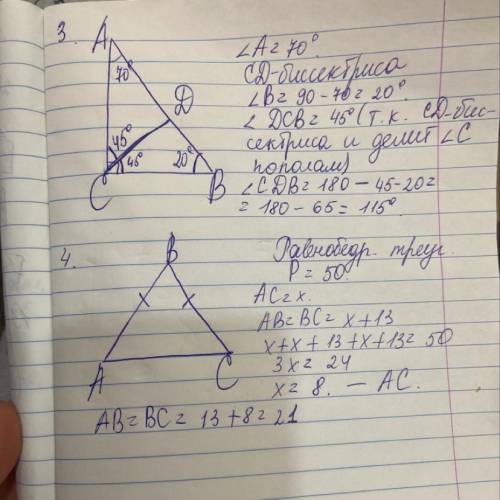 3.
A
70°
D
45°
45°
20°
C
B
∠A = 70°
CD-биссектриса
∠B = 90 - 70 = 20°
∠ DCB = 45° (т.к. CD-бис-
сектриса и делит ∠C
пополам)
∠CDB = 180 - 45 - 20 =
= 180 - 65 = 115°.
4.
B
A
C
Равнобедр. треуг.
P = 50.
AC = x.
AB = BC = x + 13
x + x + 13 + x + 13 = 50
3x = 24
x = 8. - AC.
AB = BC = 13 + 8 = 21